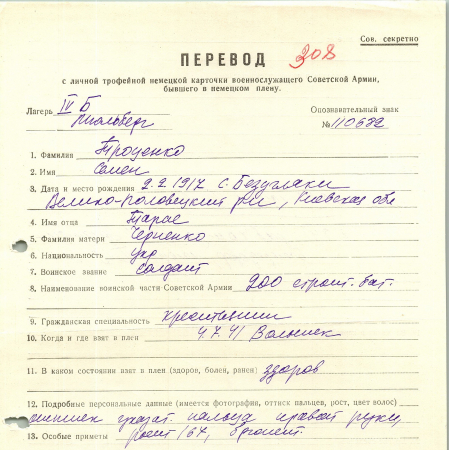 Сов. секретно
ПЕРЕВОД 308
с личной трофейной немецкой карточки военнослужащего Советской Армии,
бывшего в немецком плену.
Лагерь IV Б Опознавательный знак
Мюльберг № 110682
1. Фамилия Троценко
2. Имя Семен
3. Дата и место рождения 2.2.1917 с. Безуглаки
Велико-Половецкий р-н, Киевская обл
4. Имя отца Тарас
5. Фамилия матери Черненко
6. Национальность укр
7. Воинское звание солдат
8. Наименование воинской части Советской Армии 200 строит. бат.
9. Гражданская специальность крестьянин
10. Когда и где взят в плен 4.7.41
11. В каком состоянии взят в плен (здоров, болен, ранен) здоров
12. Подробные персональные данные (имеется фотография, отписк пальцев, рост, цвет волос)
оттиск указат. пальца правой руки,
13. Особые приметы рост 164, брюнет.